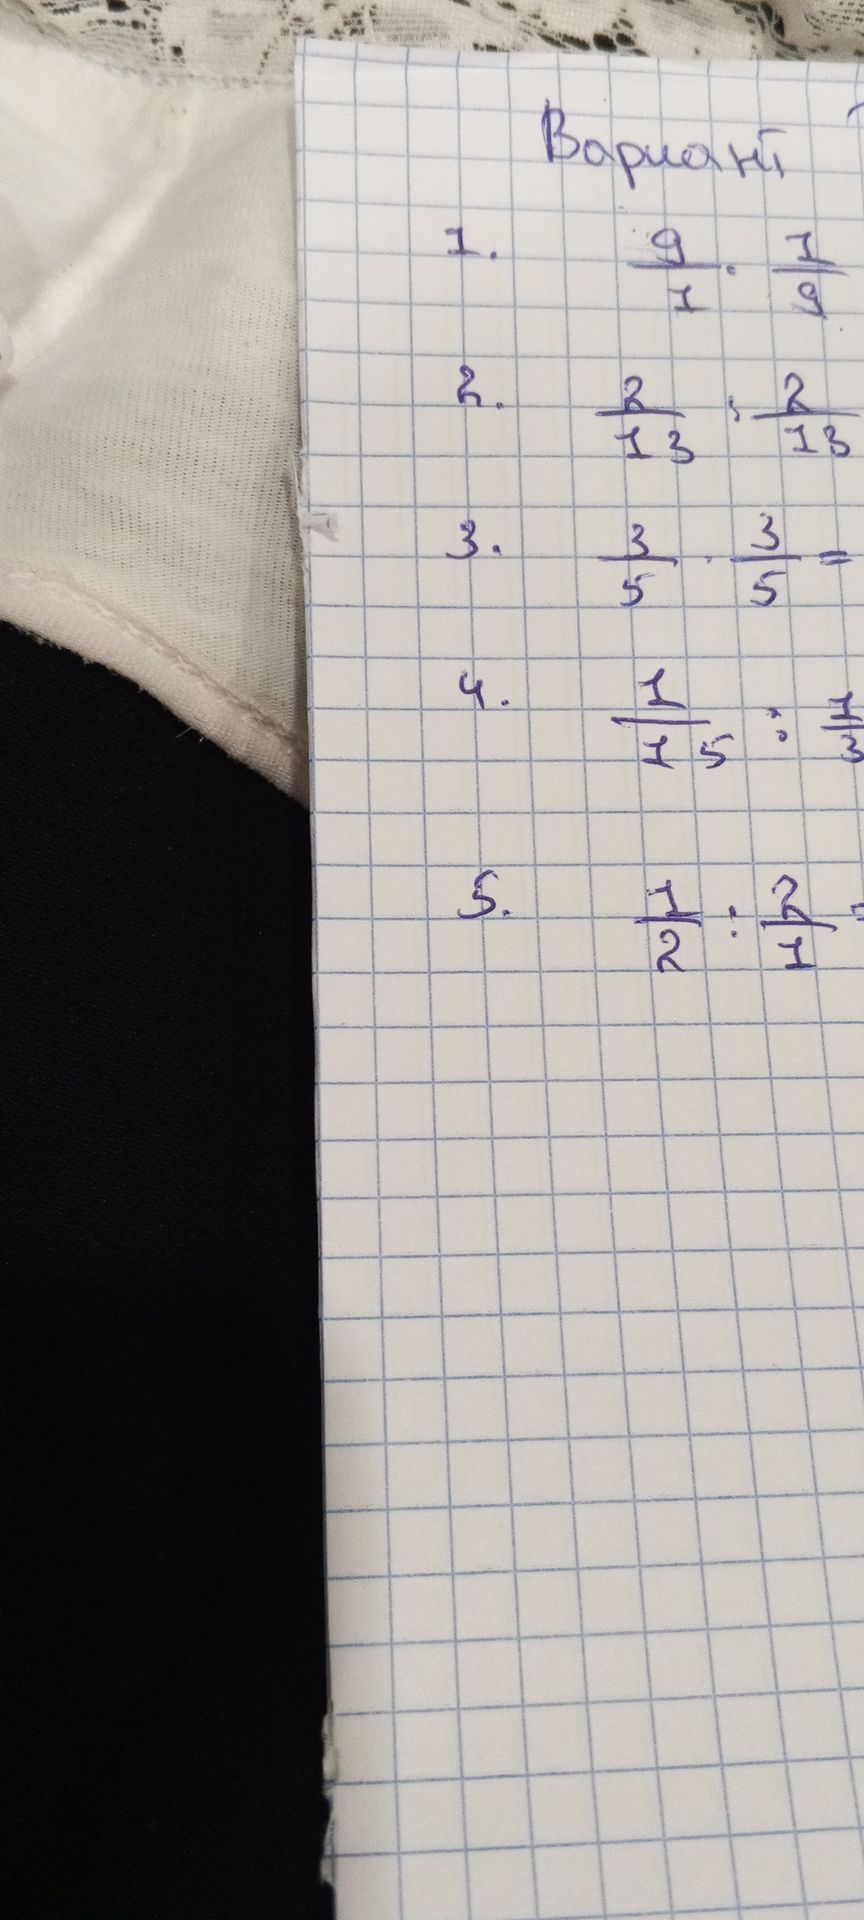 Вариант
1. 9/1 · 1/9
2. 2/13 : 2/13
3. 3/5 · 3/5 =
4. 1/15 : 1/3
5. 1/2 : 2/1